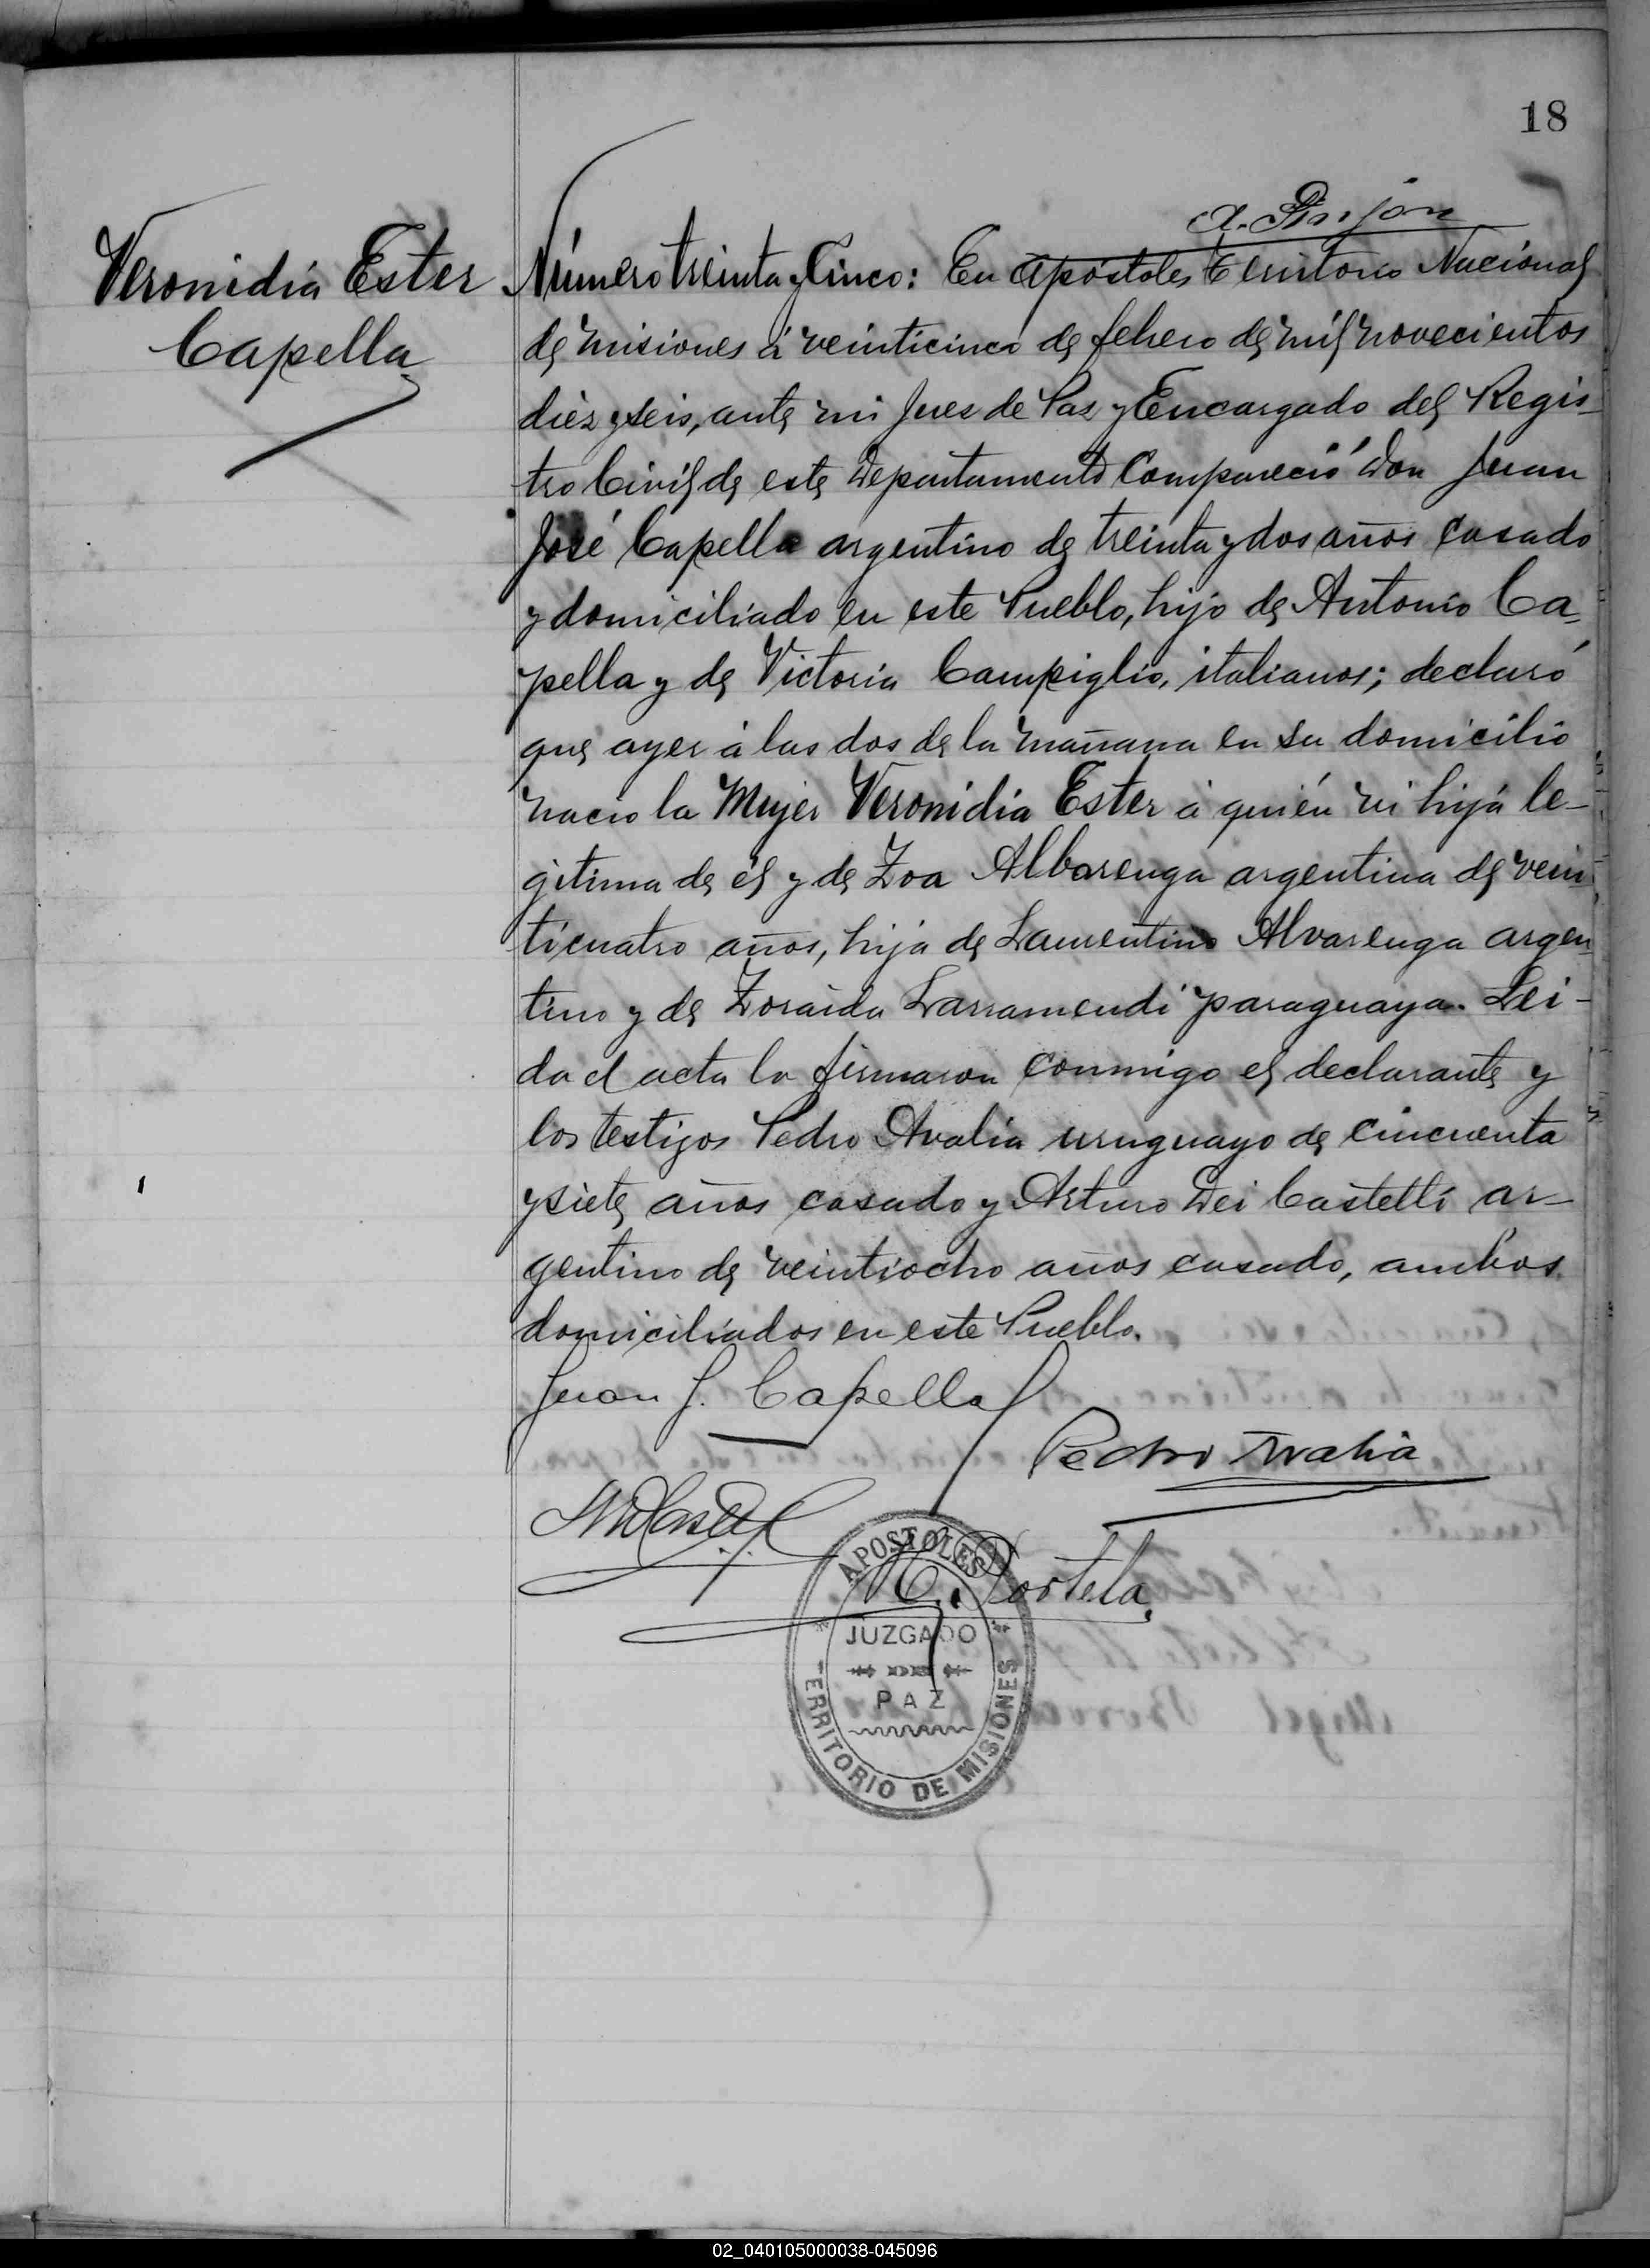 18
Veronidia Ester
Capella
Número treinta y Cinco: En Apóstoles Territorio Nacional
de Misiones á veinticinco de febrero de mil novecientos
diez y seis, ante mi Juez de Paz y Encargado del Regis-
tro Civil de este Departamento Compareció Don Juan
José Capella argentino de treinta y dos años casado
y domiciliado en este Pueblo, hijo de Antonio Ca=
pella y de Victoria Campiglio, italianos; declaró
que ayer á las dos de la mañana en su domicilio
nacio la Mujer Veronidia Ester á quién vi hija le-
gitima de él y de Zoa Albarenga argentina de vein
ticuatro años, hija de Laurentino Alvarenga argen
tino y de Zoraida Larramendi paraguaya. Lei-
da el acta la firmaron conmigo el declarante y
los testigos Pedro Avalia uruguayo de cincuenta
y siete años casado y Arturo Dei Castelli ar-
gentino de veintiocho años casado, ambos
domiciliados en este Pueblo.
Juan J. Capella
Pedro Avalia
Portela
APOSTOLES
JUZGADO
PAZ
TERRITORIO DE MISIONES
02_040105000038-045096